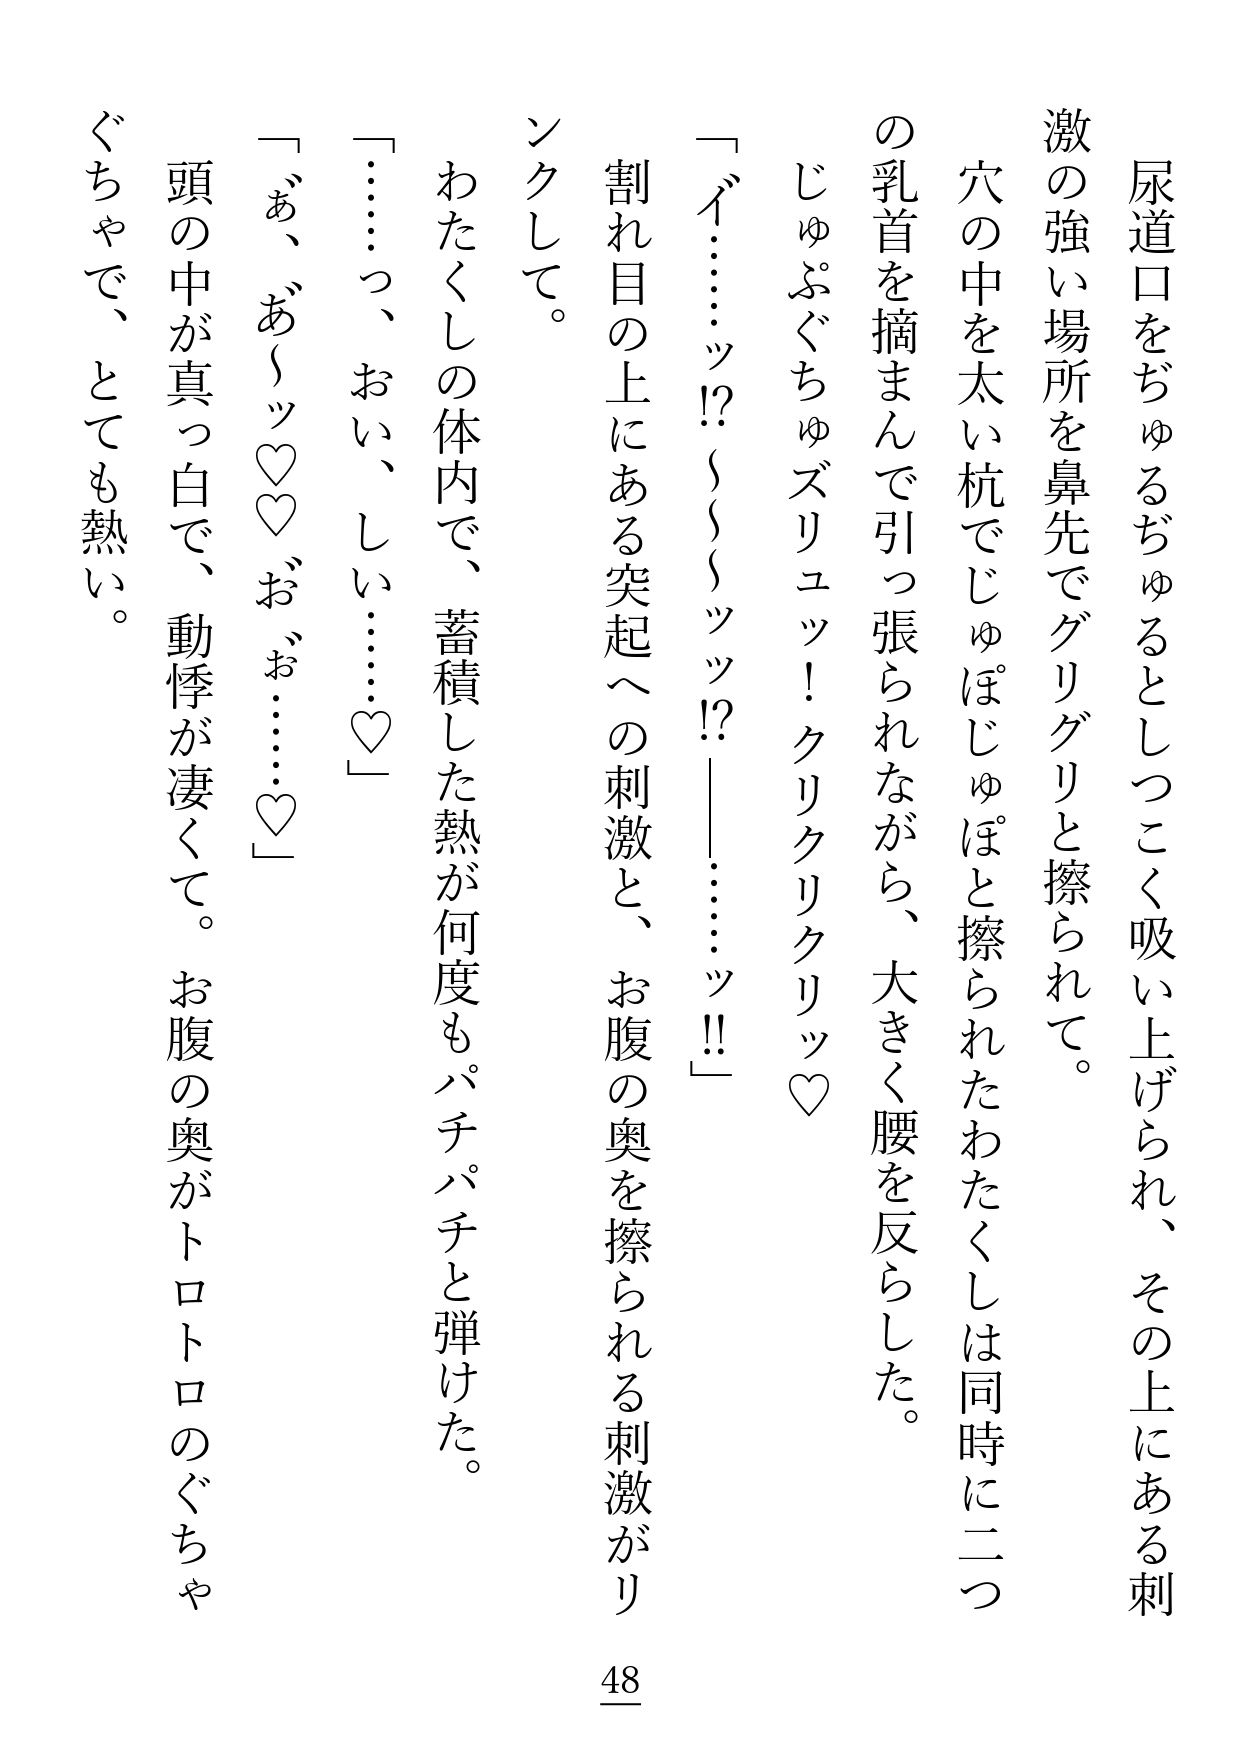 尿道口をぢゅるぢゅるとしつこく吸い上げられ、その上にある刺
激の強い場所を鼻先でグリグリと擦られて。
穴の中を太い杭でじゅぽじゅぽと擦られたわたくしは同時に二つ
の乳首を摘まんで引っ張られながら、大きく腰を反らした。
じゅぷぐちゅズリュッ！クリクリクリッ♡
「イ゛……ッ!?～～～ッッ!?――……ッ!!」
割れ目の上にある突起への刺激と、お腹の奥を擦られる刺激がリ
ンクして。
わたくしの体内で、蓄積した熱が何度もパチパチと弾けた。
「……っ、おい、しい……♡」
「ぁ゛、あ゛～ッ♡♡ お゛ぉ゛……♡」
頭の中が真っ白で、動悸が凄くて。お腹の奥がトロトロのぐちゃ
ぐちゃで、とても熱い。
48